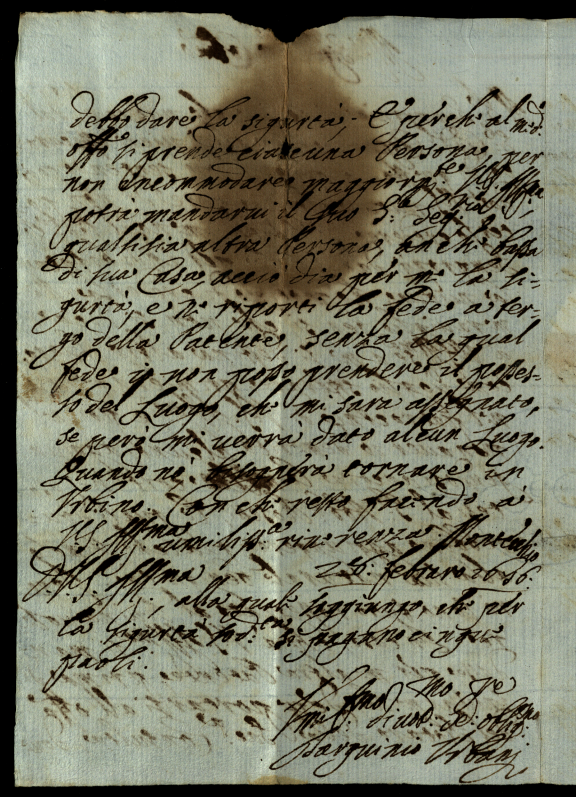 detto dare la sigurtà. E perche al md.o
offo. si prende ciascuna Persona, per
non incommodare maggiorm.te VS. Illma
potrà mandarvi il suo S.r Seg.rio
qualsisia altra Persona, anche bassa
di sua Casa, acciò dia per me la si-
gurtà, e ne riporti la fede à ter-
go della Patente, senza la qual
fede io non posso prendere il posses-
so del Luogo, che mi sarà assegnato,
se però mi verrà dato alcun Luogo.
Quando nò bisognerà tornare in
Urbino. Con che resto facendo à
VS. Illma umiliss.a riverenza
D. VS. Illma 28. febraro
, alla quale soggiungo, che per
la sigurtà sod.a si pagano cinque
paoli.
divot. ed obblig.mo
Tarquinio Urbani